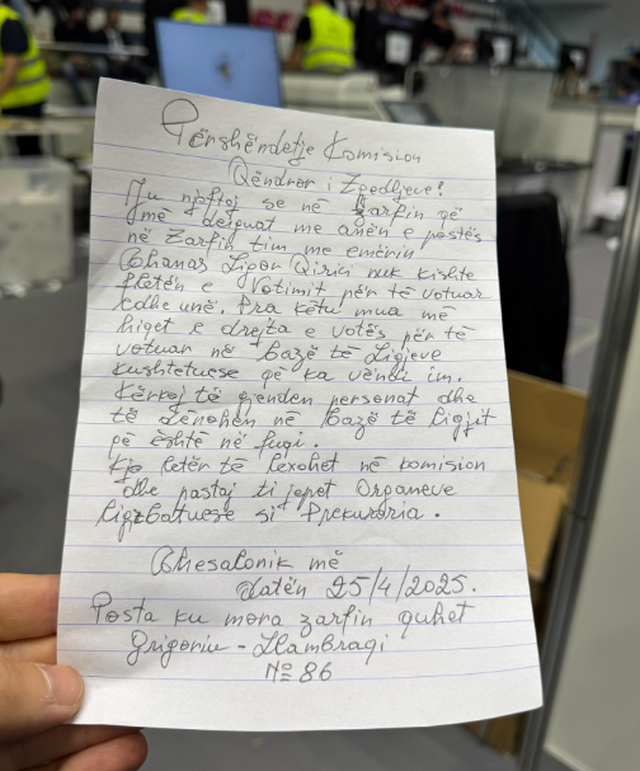 Përshëndetje Komision
Qëndror i Zgedhjeve!
Ju njoftoj se në Zarfin që
më dërguat me anën e postës
në Zarfin tim me emërin
Thanas Ligor Qirici nuk kishte
fletën e Votimit për të votuar
edhe unë. Pra këtu mua më
hiqet e drejta e votës për të
votuar në bazë të Ligjeve
kushtetuese që ka vëndi im.
Kërkoj të gjenden personat dhe
të dënohen në bazë të ligjit
që është në fuqi.
Kjo letër të lexohet në komision
dhe pastaj ti jepet Organeve
ligzbatuese si Prekuroria.
Thesalonik më
datën 25/4/2025.
Posta ku mora zarfin quhet
Grigoriu - Llambraqi
№ 86